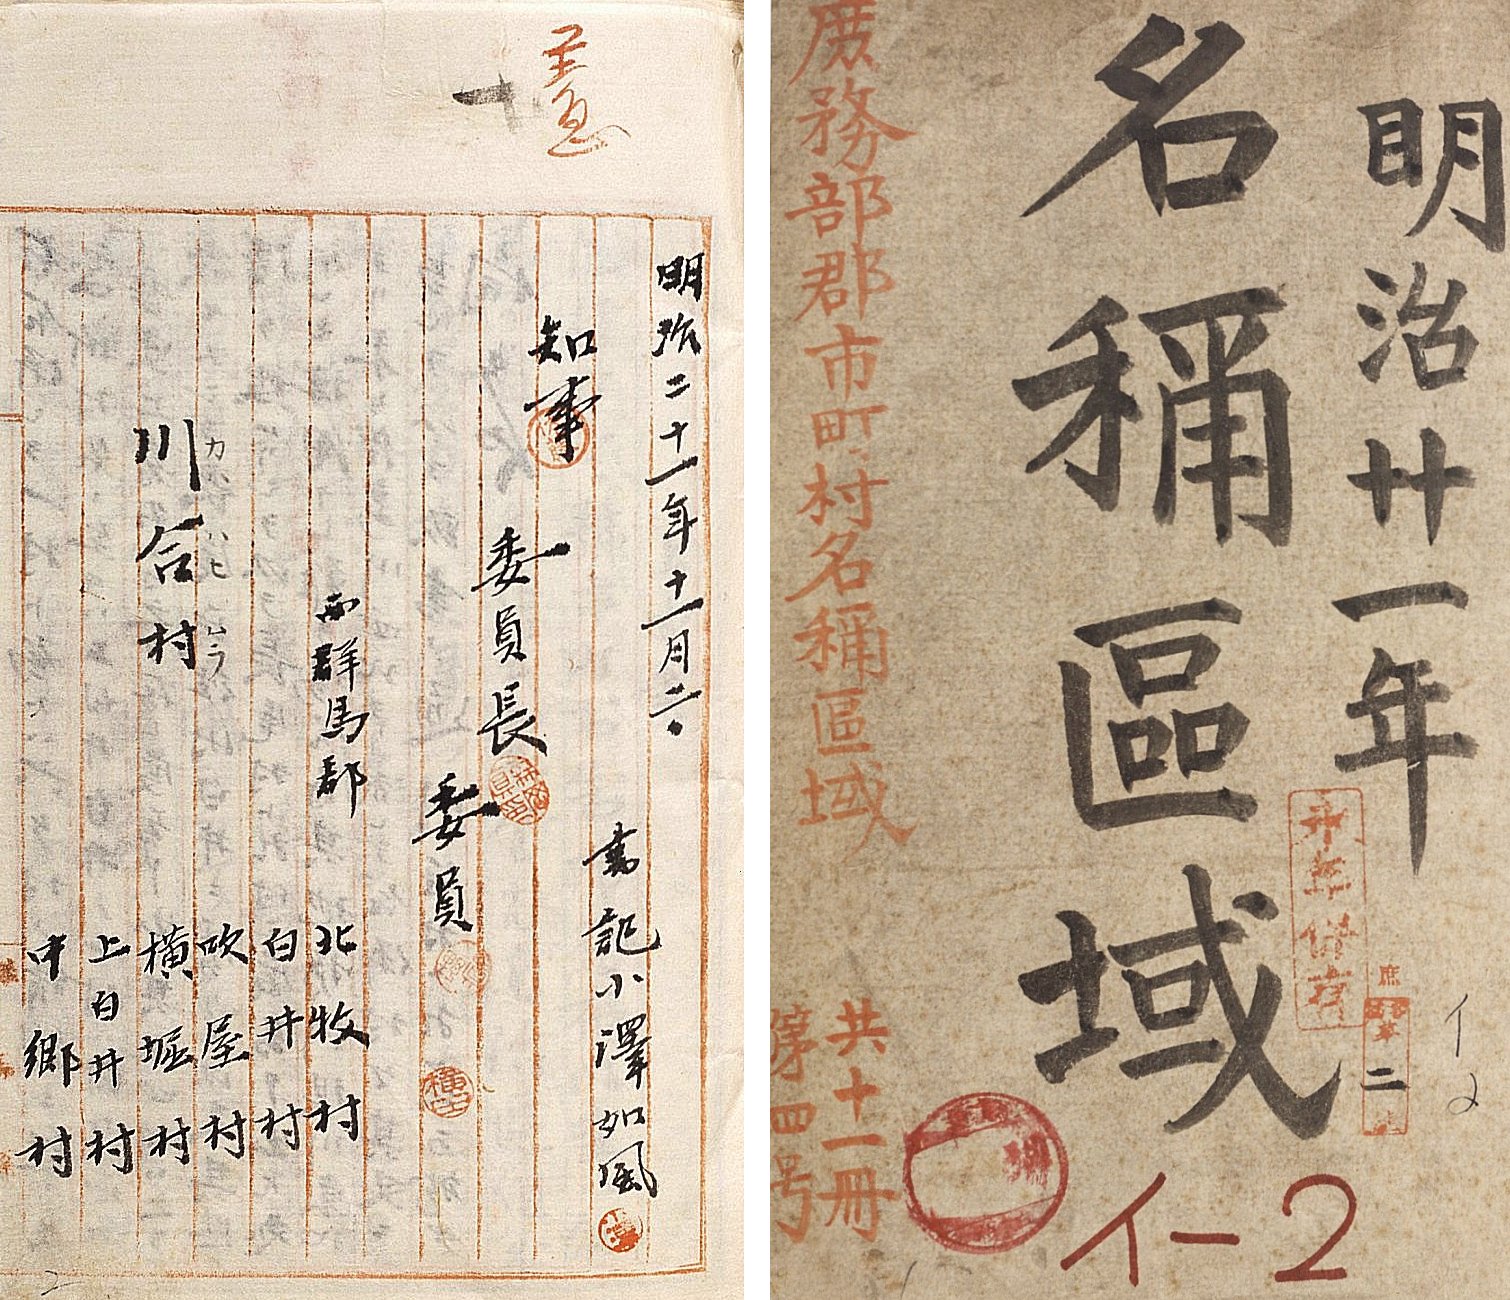 至急
十
明治二十一年十一月二
書記小澤如風
知事
委員長
委員
西群馬郡
北牧村
白井村
吹屋村
カハヒムラ
川合村
横堀村
上白井村
中郷村
明治廿一年
名稱區域
庶務部郡市町村名稱區域
共十一冊
第四号
永年保存
庶
第
二
号
イ2
イ-2